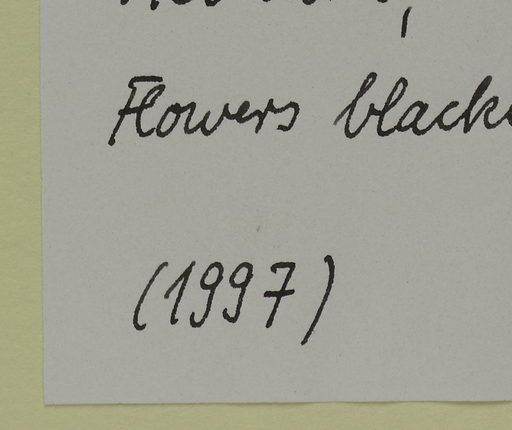 Flowers black
(1997)